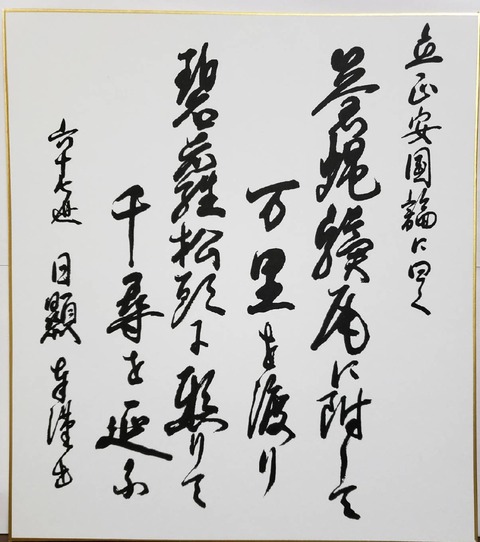 立正安国論に曰く
蒼蝿驥尾に附して
万里を渡り
碧蘿松頭に懸りて
千尋を延ふ
六十七世 日顕